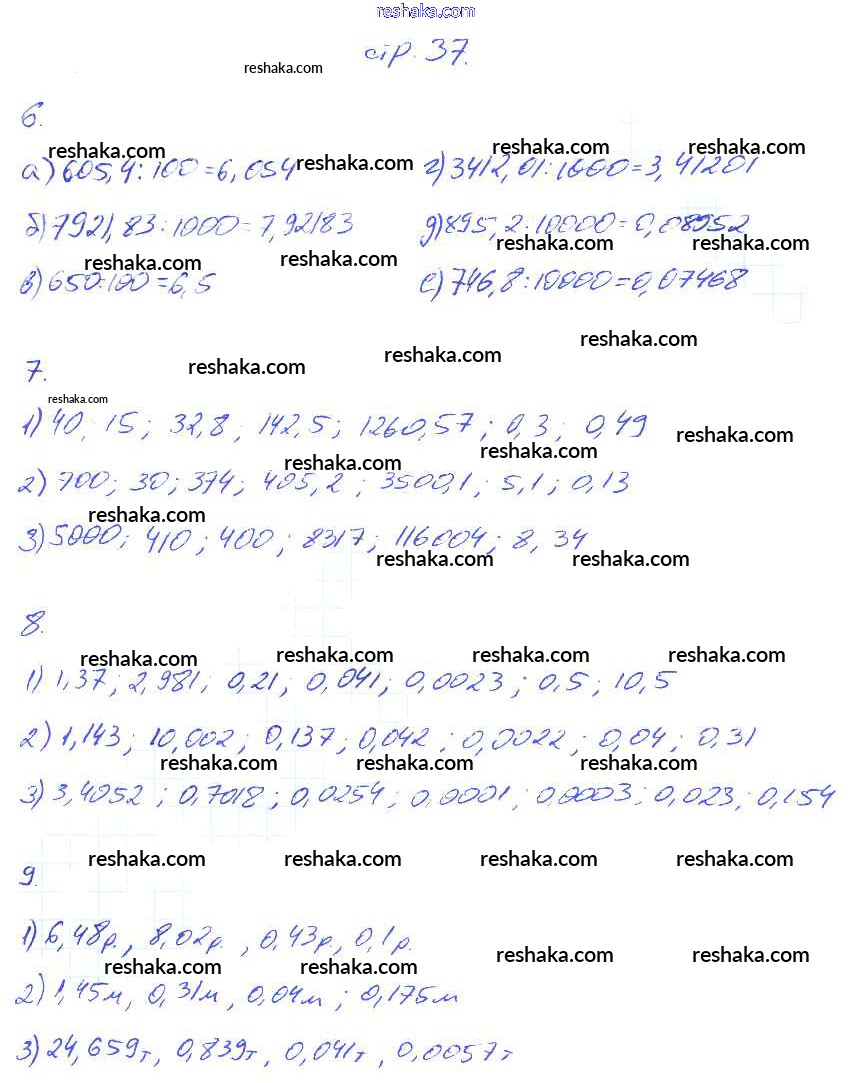 reshaka.com
стр. 37.
reshaka.com
6.
reshaka.com reshaka.com reshaka.com reshaka.com
а) 605,4 : 100 = 6,054 г) 3412,01 : 1000 = 3,41201
б) 7921,83 : 1000 = 7,92183 д) 895,2 : 10000 = 0,08952
reshaka.com reshaka.com reshaka.com reshaka.com
в) 650 : 100 = 6,5 е) 746,8 : 10000 = 0,07468
reshaka.com reshaka.com reshaka.com
7.
reshaka.com
1) 40, 15; 32,8; 142,5; 1260,57; 0,3; 0,49
reshaka.com reshaka.com reshaka.com
2) 700; 30; 374; 405,2; 3500,1; 5,1; 0,13
reshaka.com
3) 5000; 410; 400; 8317; 116004; 8,34
reshaka.com reshaka.com
8.
reshaka.com reshaka.com reshaka.com reshaka.com
1) 1,37; 2,981; 0,21; 0,041; 0,0023; 0,5; 10,5
2) 1,143; 10,002; 0,137; 0,042; 0,0022; 0,04; 0,31
reshaka.com reshaka.com reshaka.com
3) 3,4052; 0,7018; 0,0254; 0,0001; 0,0003; 0,023; 0,154
reshaka.com reshaka.com reshaka.com reshaka.com
9.
1) 6,48р., 8,02р., 0,43р, 0,1р.
reshaka.com reshaka.com reshaka.com reshaka.com
2) 1,45м, 0,31м, 0,04м; 0,175м
3) 24,659т, 0,839т, 0,041т, 0,0057т